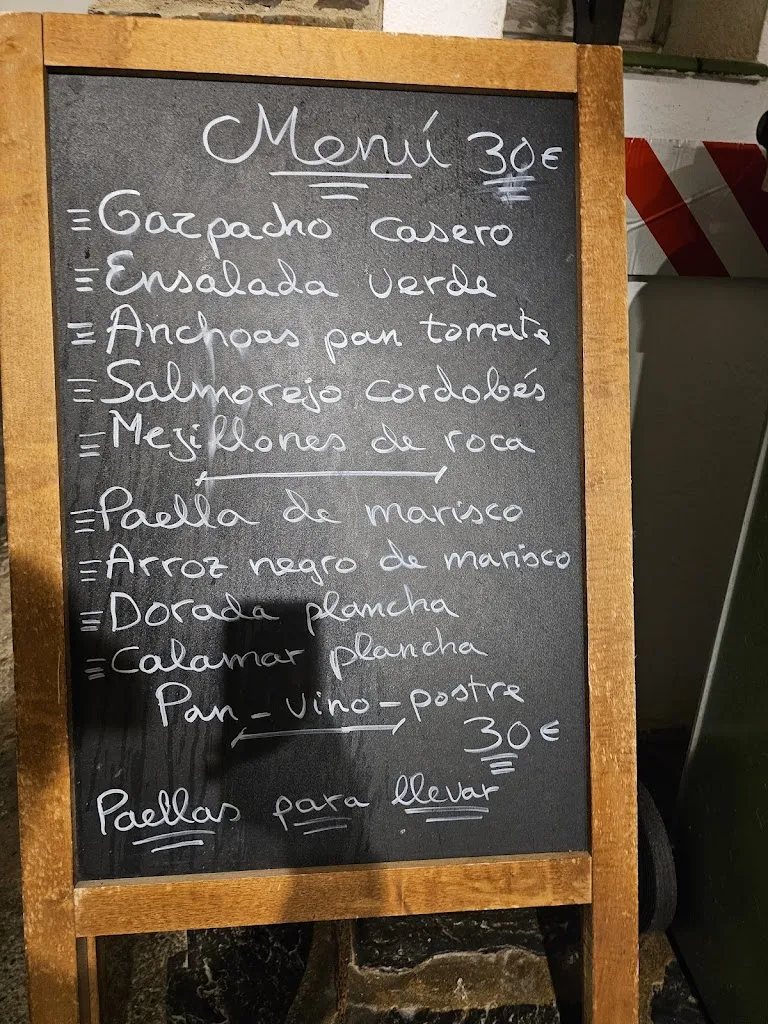 Menú 30€
Gazpacho casero
Ensalada verde
Anchoas pan tomate
Salmorejo cordobés
Mejillones de roca
Paella de marisco
Arroz negro de marisco
Dorada plancha
Calamar plancha
Pan - vino - postre
30€
Paellas para llevar